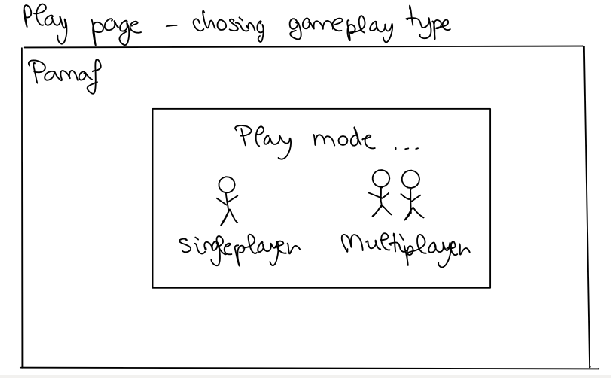 Play page - chosing gameplay type
Pamaf
Play mode ...
singleplayer Multiplayer